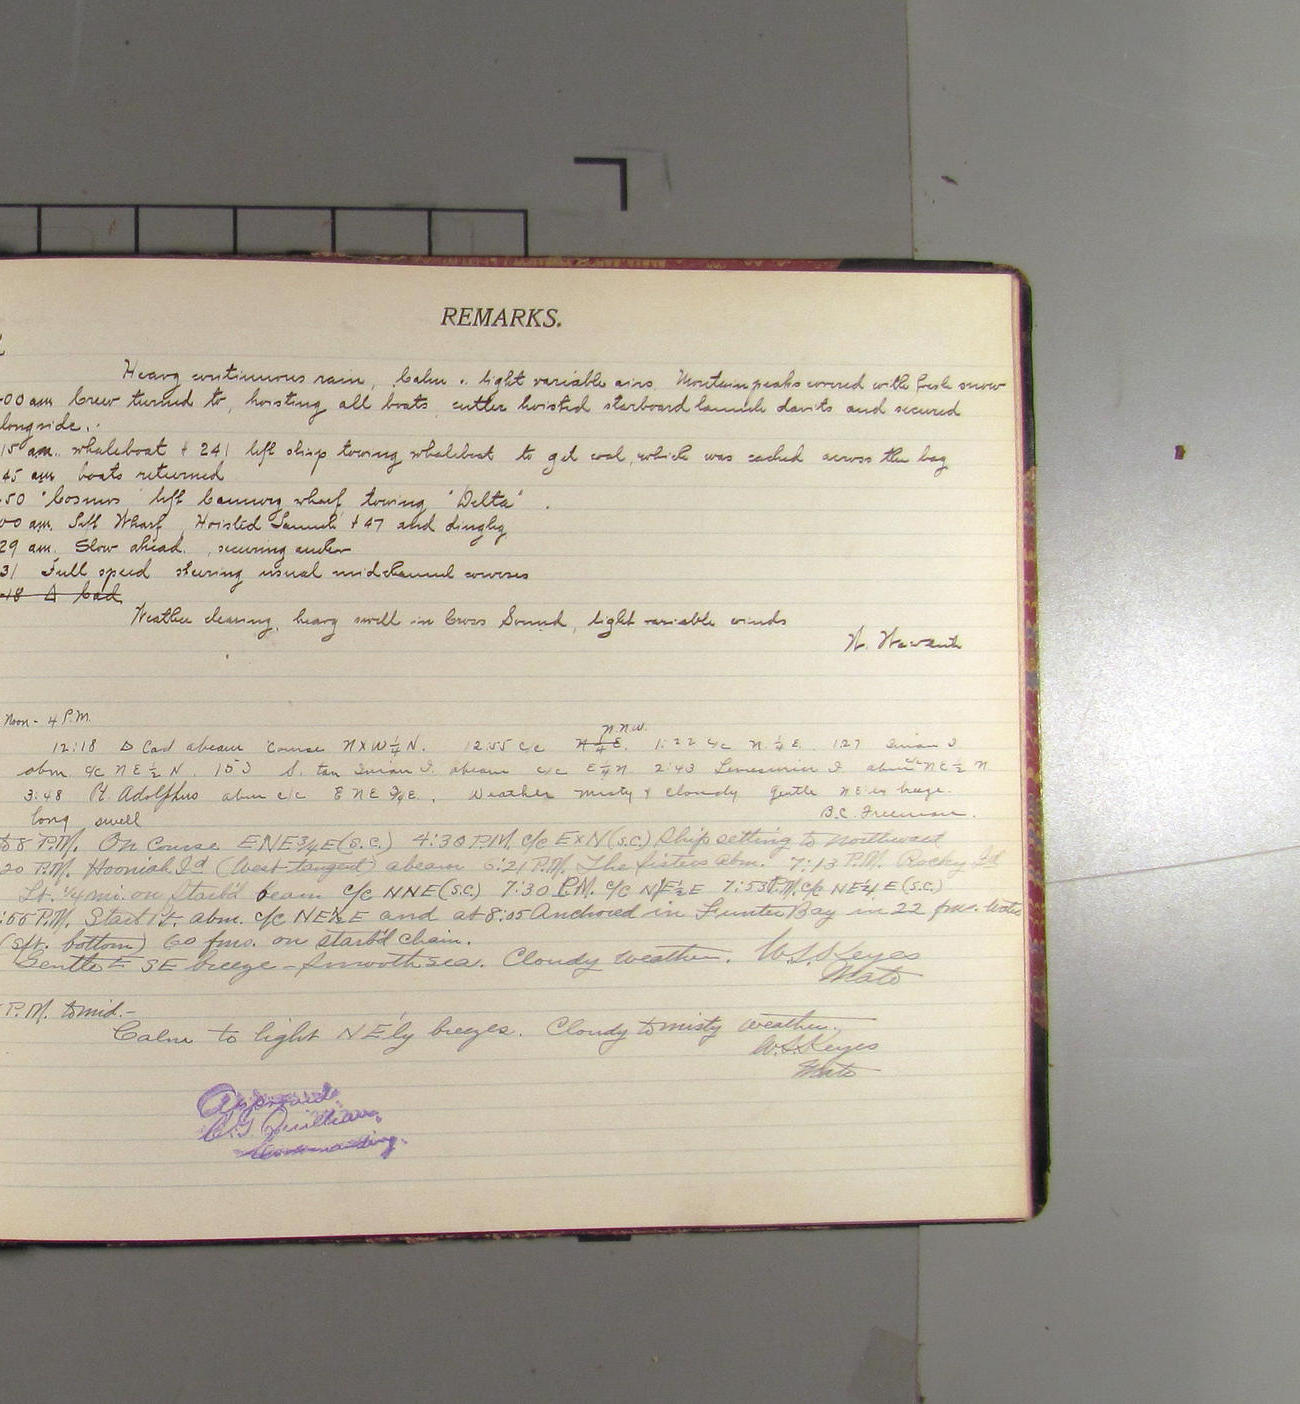 REMARKS.
Heavy continuous rain, Calm . light variable airs. Mountain peaks covered with fresh snow
00 am Crew turned to, hoisting all boats, cutter hoisted starboard launch davits and secured
longside.
15 am. whaleboat + 241 left ship towing whaleboat to get coal, which was cached across the bay
45 am boats returned
50 "Cosmos" left Cannery wharf, towing "Delta".
00 am. Left Wharf, Hoisted Launch + 47 and dinghy
29 am. Slow ahead. , securing anchor
31 Full speed steering usual midchannel courses
18 Δ Cad
Weather clearing, heavy swell in Cross Sound, light variable winds
Noon - 4 P.M.
N.N.W.
12:18 Δ Cad abeam Course NXW¼N. 12:55 C/C N¼E. 1:22 C/C N ¼ E. 127 Inian I
abm. C/C NE ½ N. 153 S. tan Inian I. abeam C/C E¼N 2:43 Lemesurier I. abm C/C NE ½ N
3:48 Pt Adolphus abm C/C ENE ¾E. Weather misty & cloudy gentle NE'ly breeze.
long swell B.C. Freeman.
58 P.M. On Course ENE¾E(S.C.) 4:30 P.M. C/C EXN(S.C.) Ship setting to northward
20 P.M. Hooniah Id (West tangent) abeam 6:21 P.M. The Sisters abm. 7:13 P.M. Rocky Id
Lt. ¼ mi. on Starb'd beam C/C NNE (S.C.) 7:30 P.M. C/C N½E 7:53 P.M. C/C NE¼E (S.C.)
:55 P.M. Lt. abm. C/C NE½E and at 8:05 Anchored in Funter Bay in 22 fms. Water
(sft. bottom) 60 fms. on starb'd chain.
Gentle E SE breeze - Smooth sea. Cloudy weather. W.S. Keyes
Mate
P.M. to mid.-
Calm to light NE'ly breezes. Cloudy to misty weather.
W.S. Keyes
Mate
Approved:
Commanding.